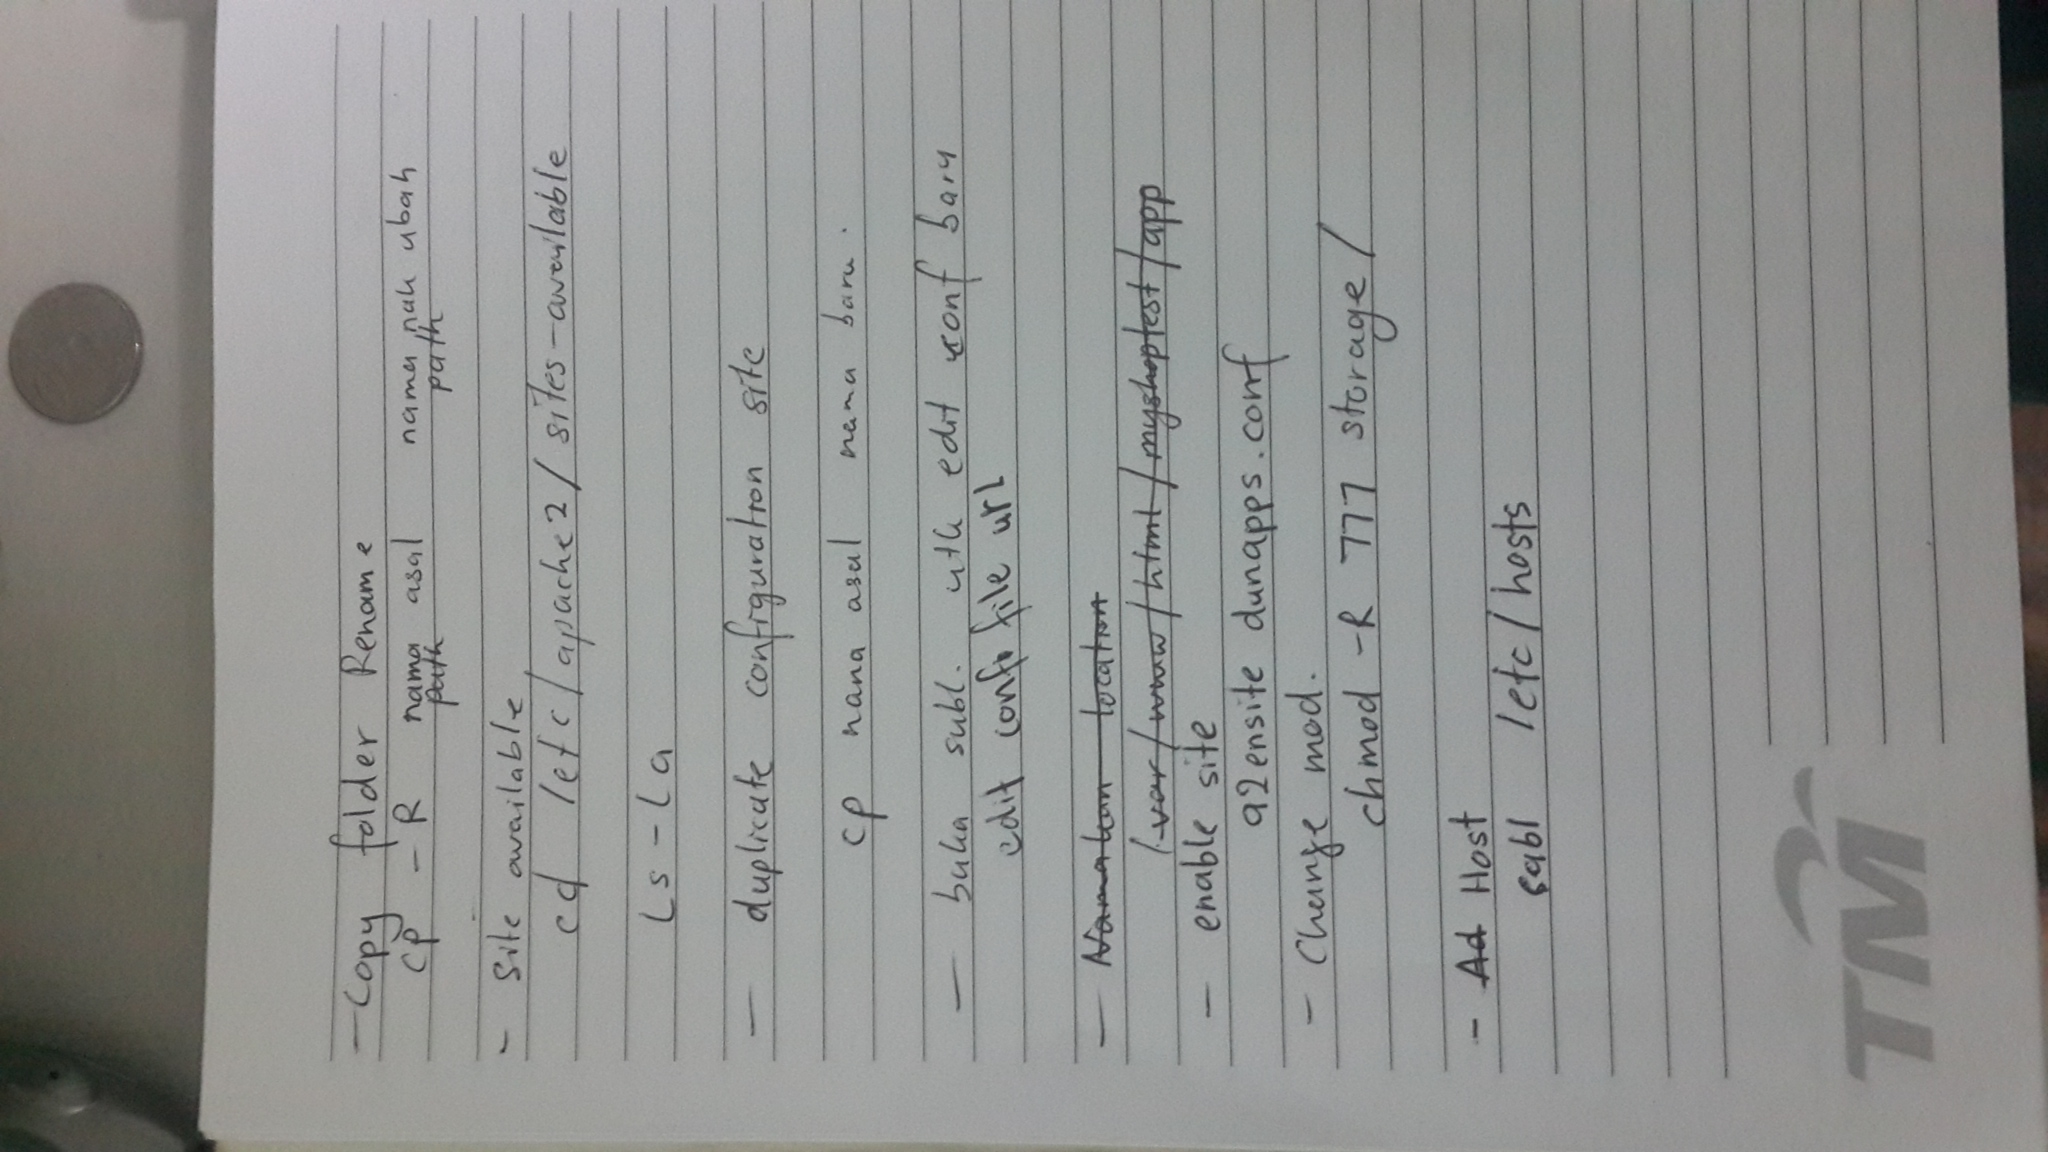 - Copy folder Rename
cp -R nama asal nama nak ubah
path path
- Site available
cd /etc/apache2/sites-available
Ls -La
- duplicate configuration site
cp nama asal nama baru.
- buka subl. utk edit conf baru
edit conf file url
- Namakan location
/var/www/html/myshoptest/app
- enable site
a2ensite dunapps.conf
- Change mod.
chmod -R 777 storage/
- Ad Host
subl /etc/hosts
TM